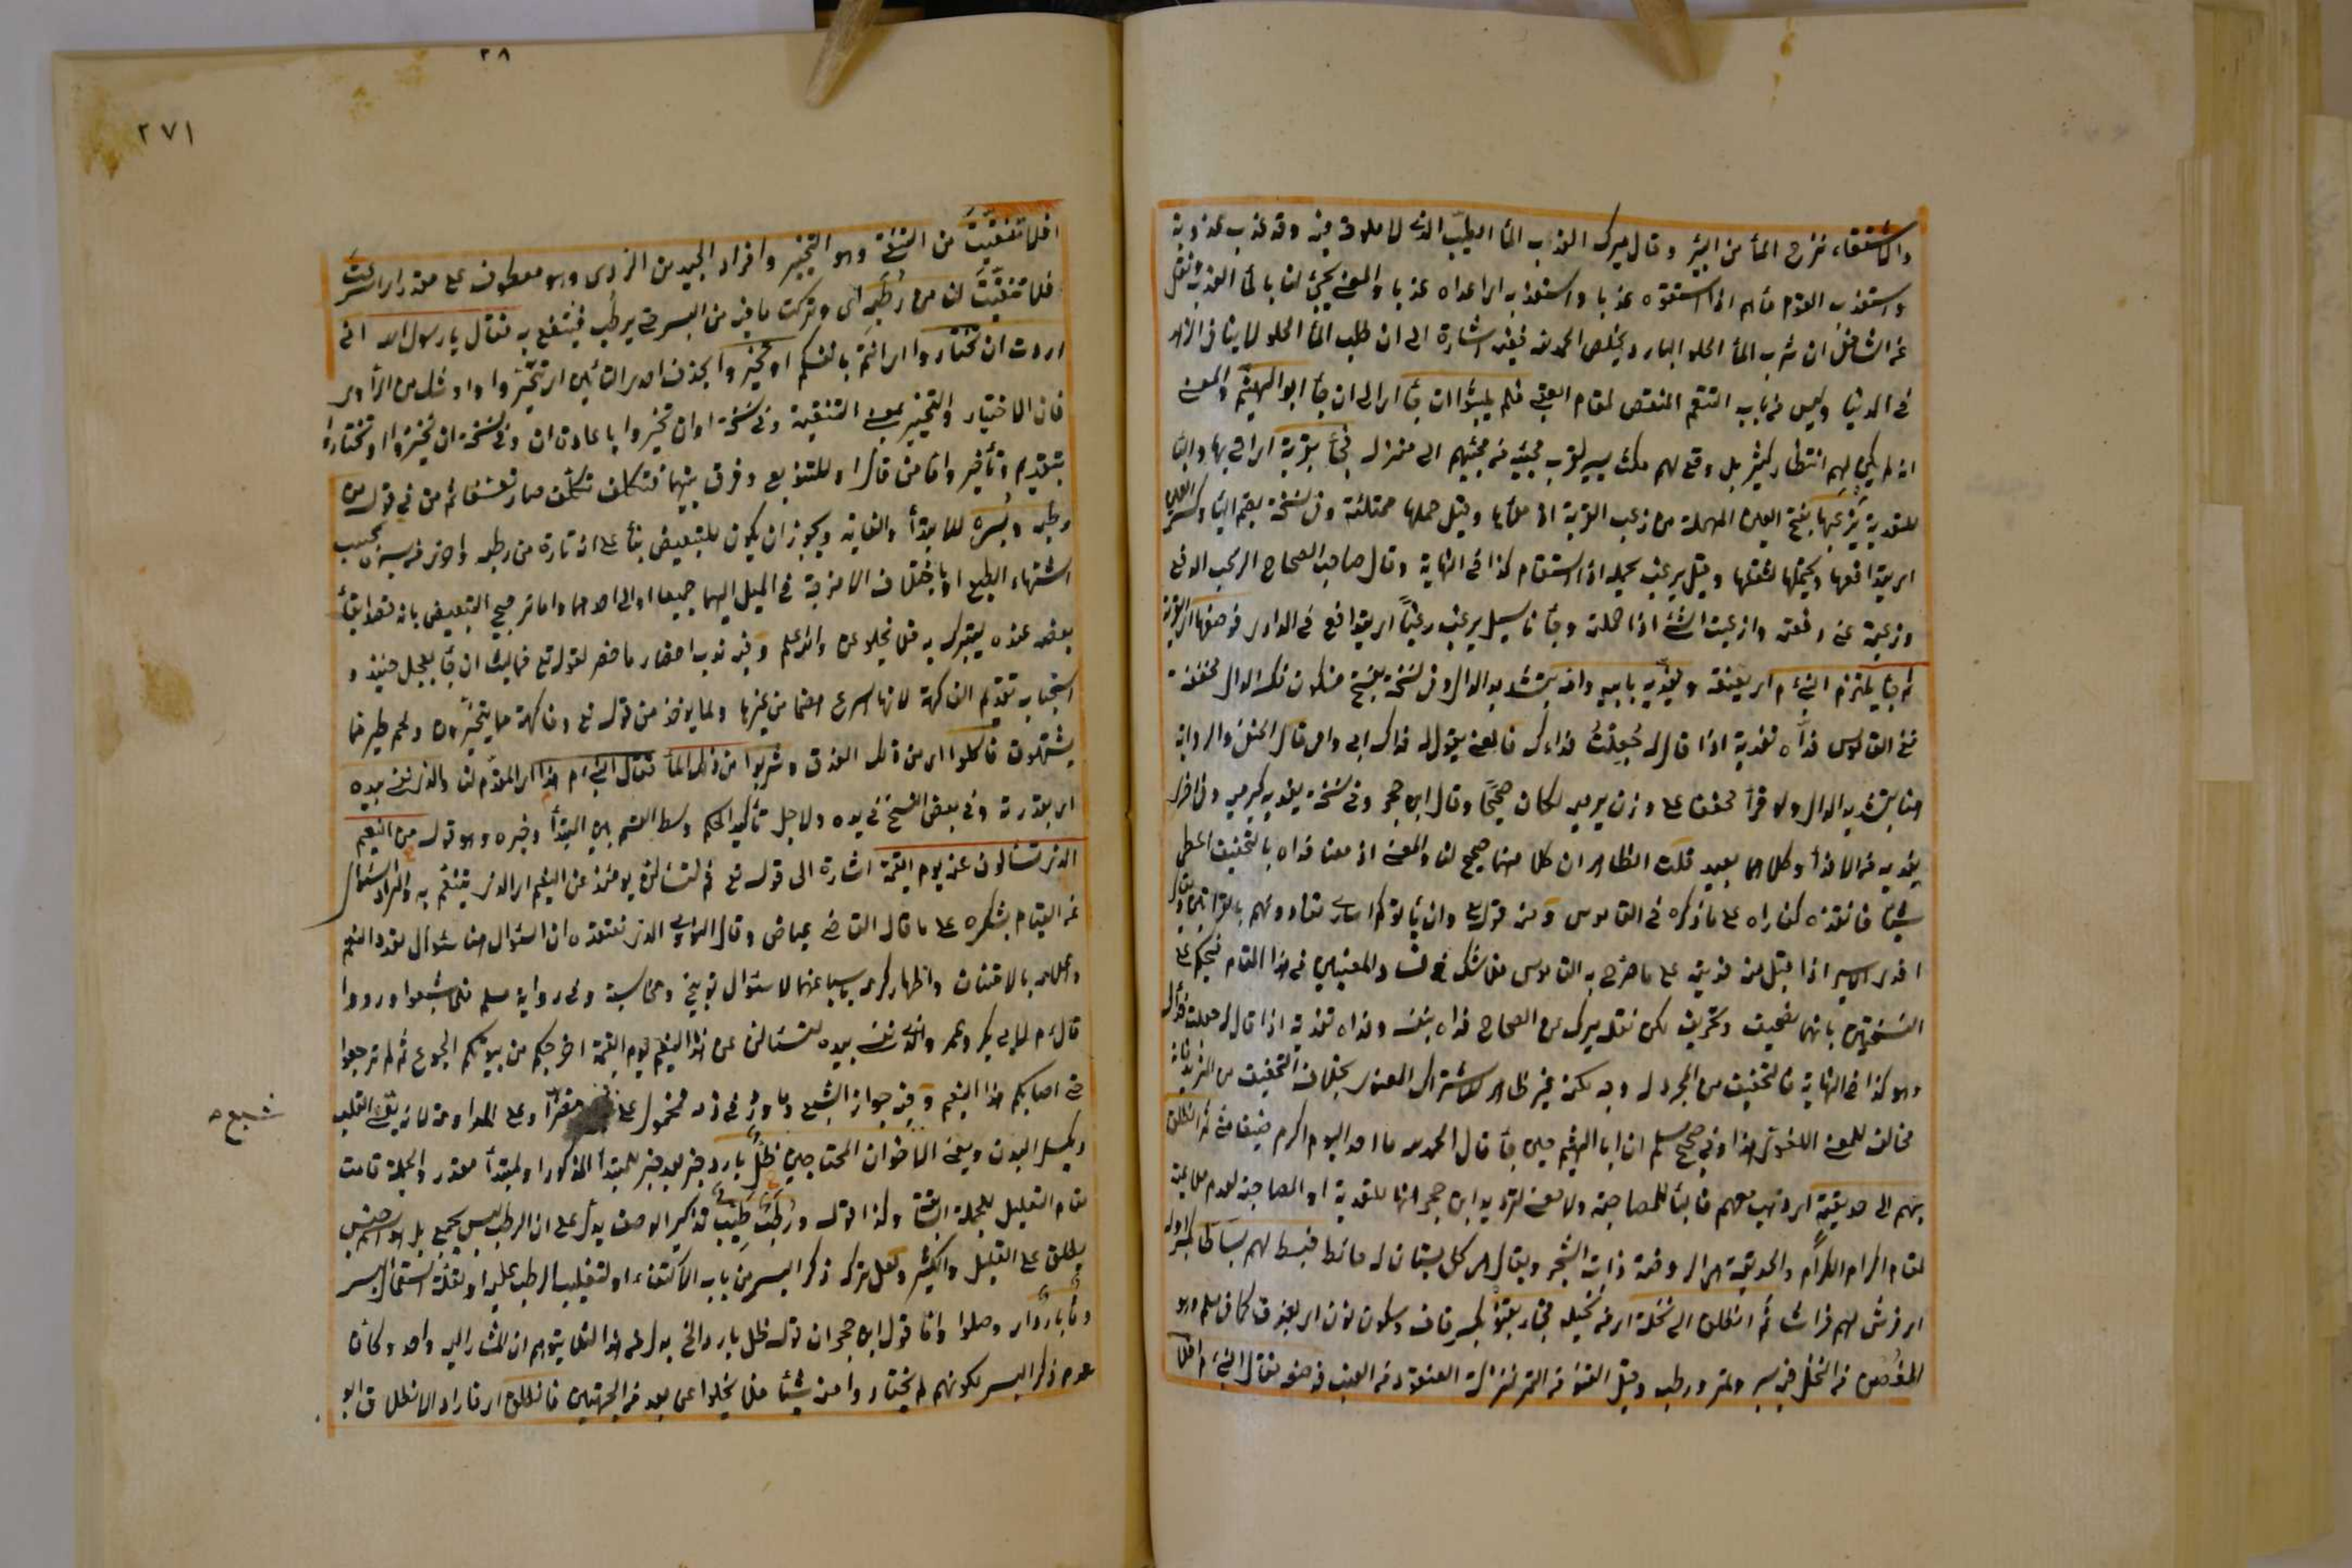 والاستقاء نزح الماء من البئر وقال ميرك العذب الماء الطيب الذي لا ملوحة فيه وقد عذب عذوبة
واستعذب القوم ماءهم اذا استقوه عذبا واستعذبه اي اعده عذبا والمعنى يجيء لنا بالماء العذب ونقل
عن الشاذلي ان شرب الماء الحلو البارد يخلص الحمد لله ففيه اشارة الى ان طلب الماء الحلو لا ينافي الزهد
في الدنيا وليس من باب التنعم المنقص لمقام العقبى فلم يلبثوا ان جاء اي الى ان جاء ابو الهيثم والمعنى
انه لم يكن لهم انتظار كثير بل وقع لهم مكث يسير لقرب مجيئه من مجيئهم الى منزله فجاء بقربة اي اتى بها والباء
للتعدية يزعبها بفتح العين المهملة من زعب القربة اذا ملأها وقيل حملها ممتلئة وفي نسخة بضم الياء وكسر العين
اي يتدافعها ويحتملها لثقلها وقيل يزعب بحمله اذا استقام كذا في النهاية وقال صاحب الصحاح الزعب الدفع
وزعبته عني دفعته وازعبت الشئ اذا حملته وجاءنا سيل يزعب زعبًا اي يتدافع في الوادي فوضعها اي القربة
ثم جاء يلتزم النبي ۴ اي يعانقه ويفديه بابيه وامه بتشديد الدال وفي نسخة بفتح فسكون فكسر الدال مخففة
ففي القاموس فداه تفدية اذا قال له جعلت فداءك فالمعنى يقول له فداك ابي وامي قال الحنفي والرواية
هنا بتشديد الدال ولو قرأ مخففا على وزن يرميه لكان صحيحًا وقال ابن حجر وفي نسخة يفديه كيرميه وفي اخرى
يفديه من الافداء وكلاهما بعيد قلت الظاهر ان كلا منهما صحيح لنا والمعنى اذ معنا فداه بالتخفيف اعطى
شيئا فانقذه كفاداه على ما ذكره في القاموس ومنه قوله تعالى وان يأتوكم اسارى تفادوهم بالقراءتين ويقال
افدى الاسير اذا قبل منه فديته على ما صرح به القاموس فلا شك في فساد المعنيين في هذا المقام فيحكم على
النسختين بانهما تصحيف وتحريف لكن نقل ميرك عن الصحاح فداه بنفسه وفداه تفدية اذا قال له جعلت فداك
وهو كذا في النهاية فالتخفيف من المجرد له وجه لكنه غير ظاهر للاشتراك المعنوي بخلاف التخفيف من المزيد فانه
مخالف للمعنى اللغوي هذا وفي صحيح مسلم ان ابا الهيثم حين جاء قال الحمد لله ما احد اليوم اكرم ضيفا مني ثم انطلق
بهم الى حديقته اي ذهب معهم فالباء للمصاحبة ولا معنى لترديد ابن حجر انها للتعدية او المصاحبة لعدم ملاءمة
لمقام اكرام الكرام والحديقة هي الروضة ذات الشجر ويقال هي كل بستان له حائط فبسط لهم بساطا بكسر اوله
اي فرش لهم فراشا ثم انطلق الى نخلة اي من نخيله فجاء بقنو بكسر قاف وسكون نون اي بعذق كما في مسلم وهو
الغصن من النخل فيه بسر وتمر ورطب وقيل القنو من التمر بمنزلة العنقود من العنب فوضعه فقال النبي ۴ افلا
افلا تنقيت من التنقية وهو التخيير وافراد الجيد من الردى وهو معطوف على مقدر اي اسرعت
فلا تنقيت لنا من رطبه اي وتركت ما فيه من البسر حتى يرطب فينتفع به فقال يا رسول الله اني
اردت ان تختاروا اي انتم بانفسكم او تخيروا بحذف احدى التائين اي تتخيروا او للشك من الراوي
فان الاختيار والتخيير بمعنى التنقية وفي نسخة او ان تخيروا باعادة ان وفي نسخة ان تخيروا او تختاروا
بتقديم وتأخير واما من قال او للتنويع وفرق بينهما فتكلف تكلف صار تعسفا ثم من في قوله من
رطبه وبسره للابتداء والغاية ويجوز ان يكون للتبعيض بناء على انه تارة من رطبه واخرى من بسره بحسب
اشتهاء الطبع او باختلاف الامزجة في الميل اليهما جميعا او الى احدهما واما ترجيح التبعيض بانه فقط ابقاء
بعضه عنده ليتبرك به فلا يخلو عن والله اعلم وفيه ندب احضار ما حضر لقوله تع فما لبث ان جاء بعجل حنيذ و
استحباب تقديم الفاكهة لانها اسرع هضما من غيرها ولما يؤخذ من قوله تع وفاكهة مما يتخيرون ولحم طير مما
يشتهون فاكلوا اي من ذلك العذق وشربوا من ذلك الماء فقال النبي ۴ هذا اي المقدم لنا والذي نفسي بيده
اي بقدرته وفي بعض النسخ في يده ولاجل تأكيد الحكم وسط القسم بين المبتدأ وخبره وهو قوله من النعيم
الذي تسئلون عنه يوم القيمة اشارة الى قوله تع ثم لتسئلن يومئذ عن النعيم اي الذي يتنعم به والمراد السؤال
عن القيام بشكره على ما قال القاضي عياض وقال النووي الذي نعتقده ان السؤال هنا سؤال تعداد النعم
واعلام بالامتنان واظهار كرمه باسباغها لا سؤال توبيخ ومحاسبة وفي رواية مسلم فلما شبعوا ورووا
قال ۴ لابي بكر وعمر والذي نفسي بيده لتسئلن عن هذا النعيم يوم القيمة اخرجكم من بيوتكم الجوع ثم لم ترجعوا
حتى اصابكم هذا النعيم وفيه جواز الشبع وما ورد في ذمه محمول على مضرا وعلى المداومة لانه يقسي القلب
ويكسل البدن وينسي الاخوان المحتاجين ظل بارد خبر بعد خبر للمبتدأ المذكور او لمبتدأ مقدر والجملة قامت
مقام التعليل للجملة السابقة وكذا قوله ورطب طيب تذكير الوصف يدل على ان الرطب ليس بجمع بل هو اسم جنس
يطلق على القليل والكثير ولعل ترك ذكر البسر من باب الاكتفاء او لتغليب الرطب عليه او لقلة استعمال البسر
وماء بارد اي وصلوا واما قول ابن حجر ان قوله ظل بارد الخ بدل من هذا لئلا يتوهم ان المشار اليه واحد وكان
عدم ذكر البسر لكونهم لم يختاروا منه شيئا فلا يخلوا عن بعد من الجهتين فانطلق اي فاراد الانطلاق ابو
شبع ۴
٢٨
٢٧١